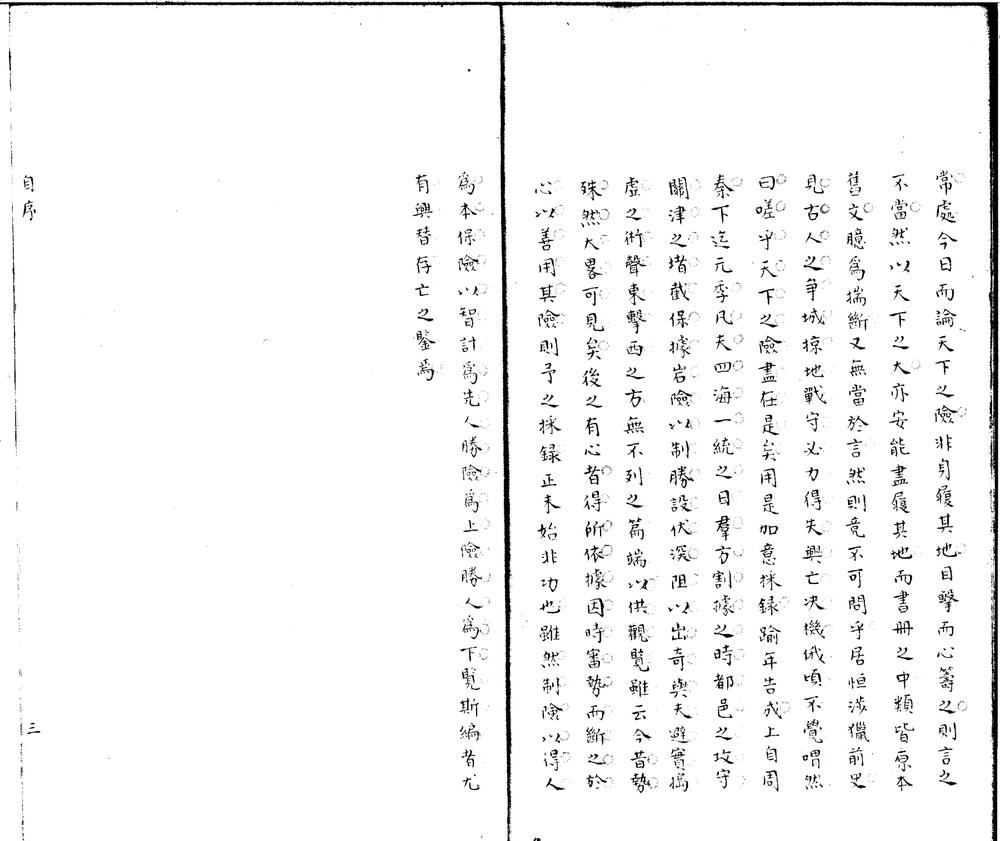 常處今日而論天下之險非身履其地目擊而心籌之則言之
不當然以天下之大亦安能盡履其地而書册之中類皆原本
舊文臆爲揣斷又無當於言然則竟不可問乎居恒涉獵前史
見古人之争城掠地戰守必力得失興亡决機俄頃不覺喟然
曰嗟乎天下之險盡在是矣用是加意採録踰年告成上自周
秦下迄元季凡夫四海一統之日羣方割據之時都邑之攻守
關津之堵截保據岩險以制勝設伏深阻以出奇與夫避實擣
虚之術聲東擊西之方無不列之篇端以供觀覽雖云今昔勢
殊然大畧可見矣後之有心者得所依據因時審勢而斷之於
心以善用其險則予之採録正未始非功也雖然制險以得人
爲本保險以智計爲先人勝險爲上險勝人爲下覽斯編者尤
有興替存亡之鑒焉
自序
三